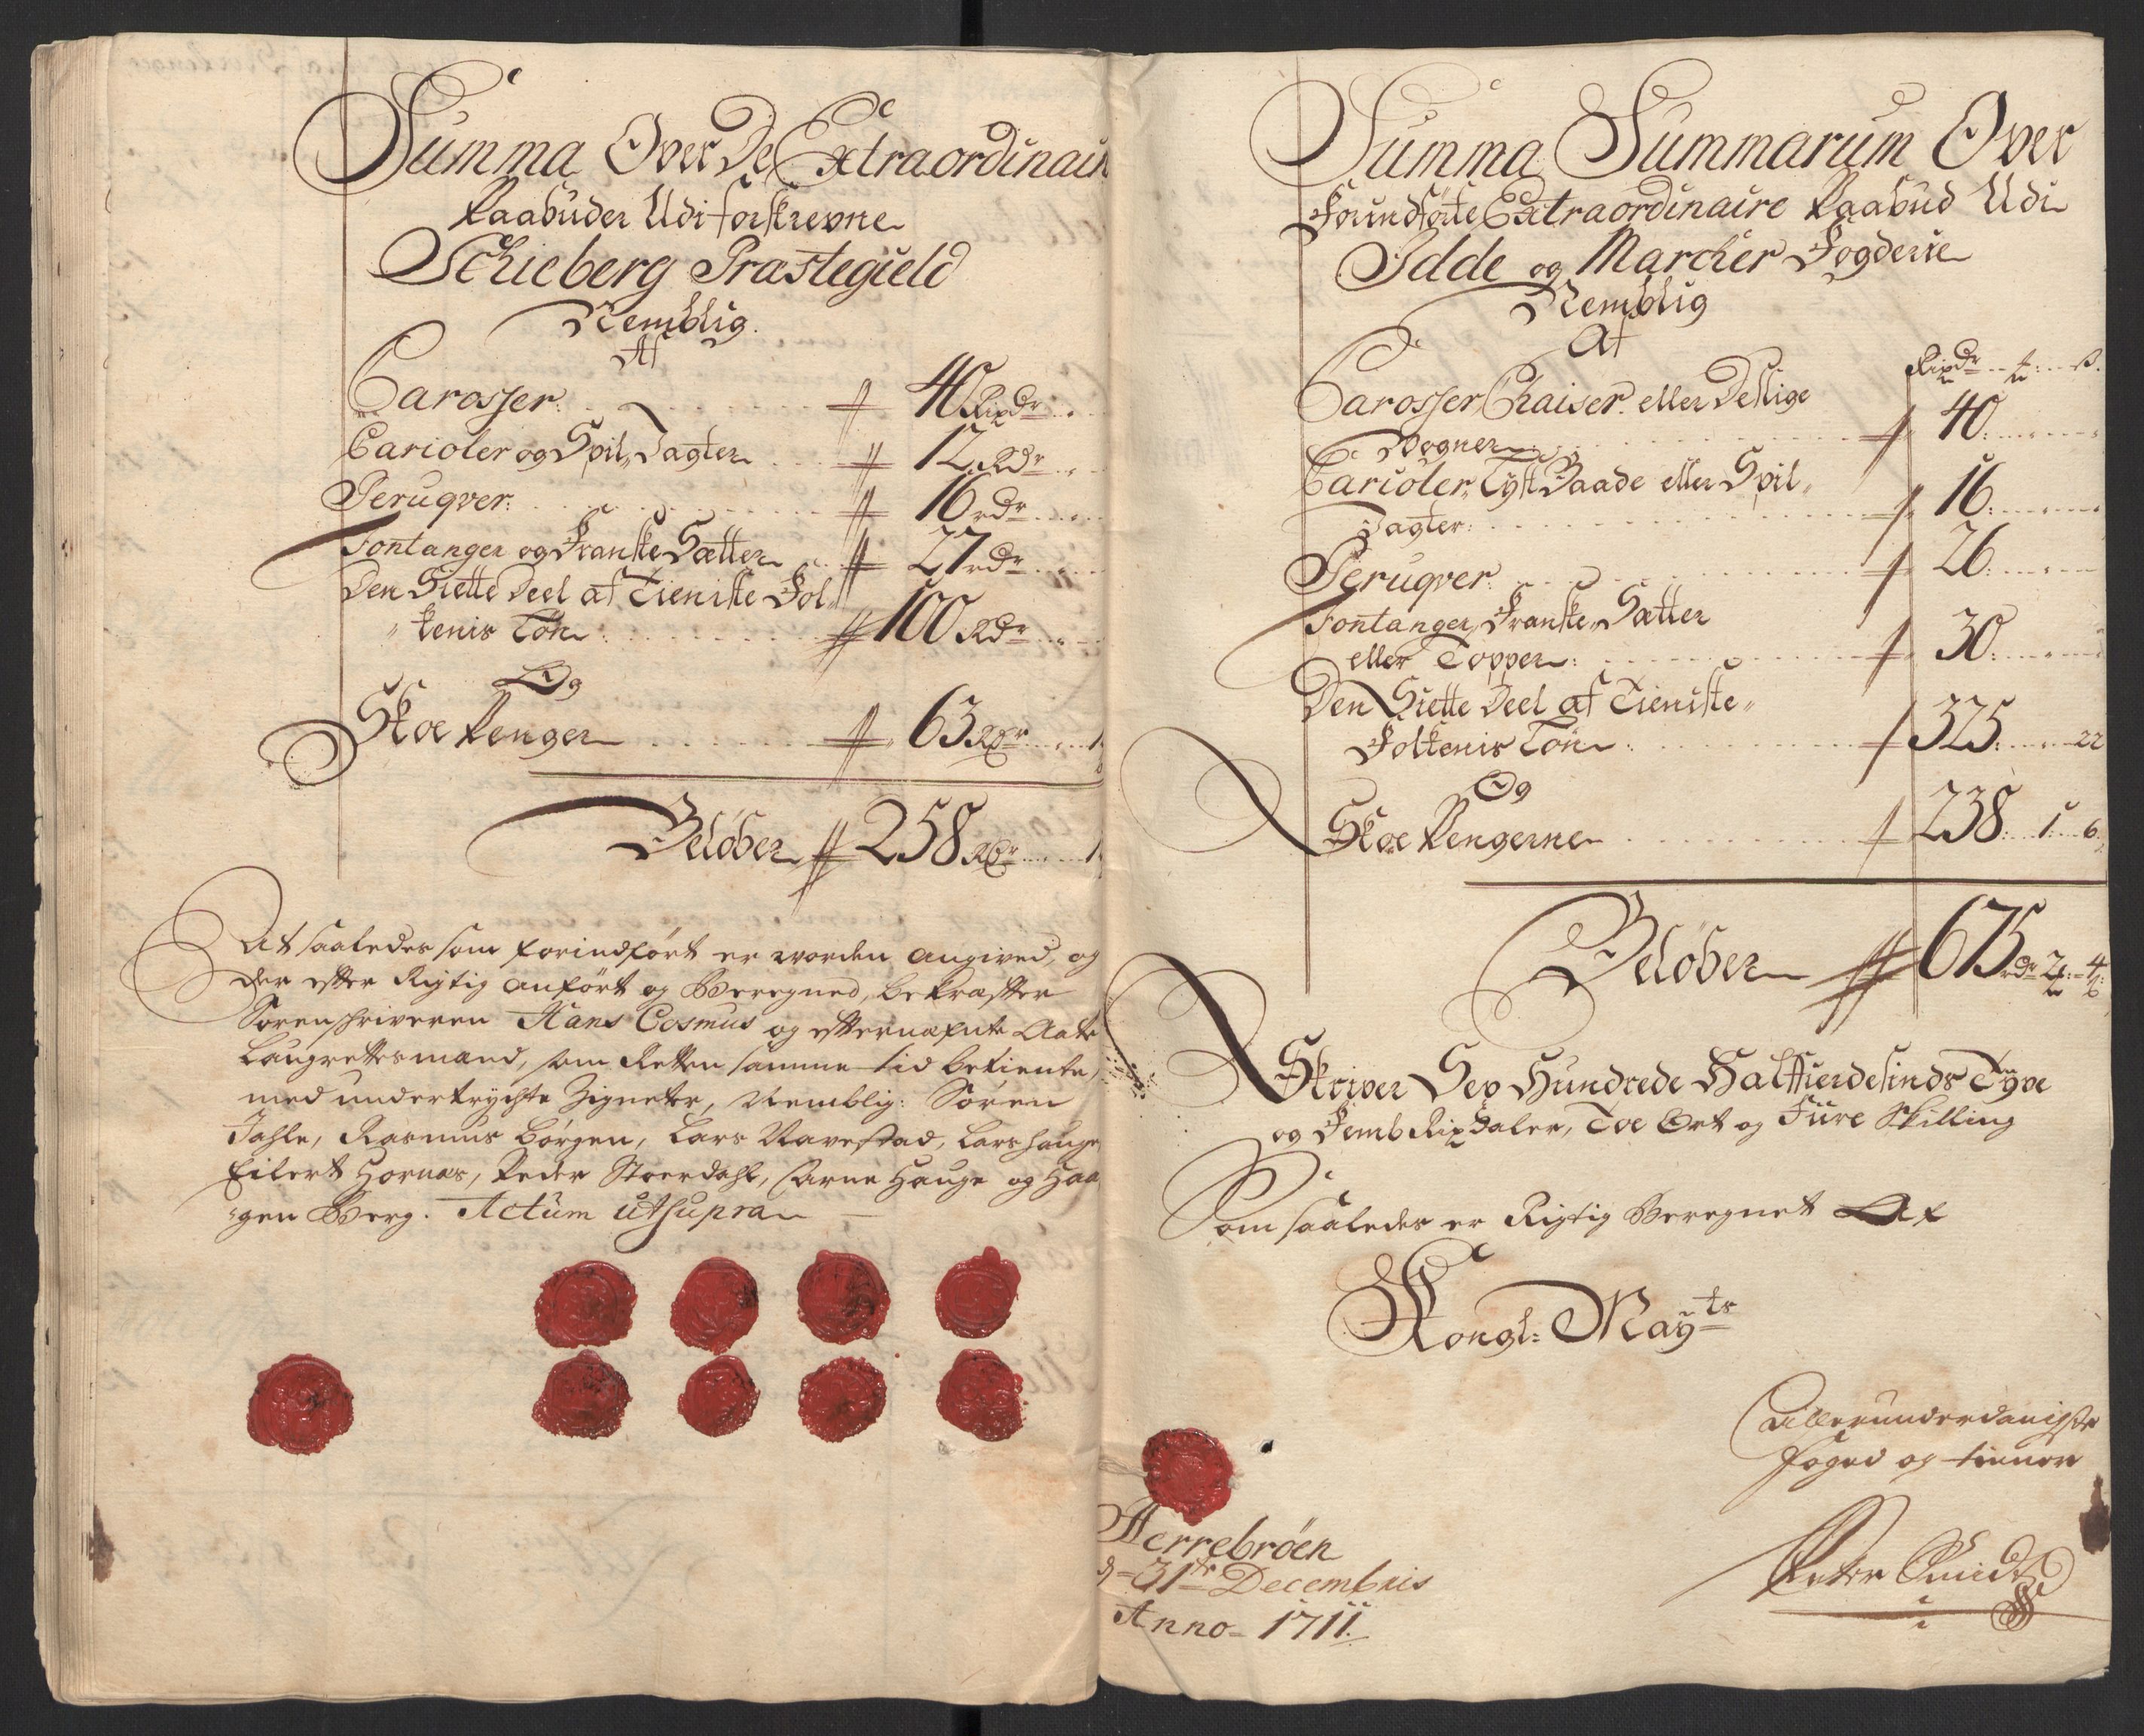 Summa Over De Extraordinair
Paabuder Udi forskrevne
Schieberg Præstegield
Nemblig.
Af
Carosser: 40 Rixdr
Carioler og Spil Jagter 12 Rdr
Peruqver: 16 rdr
Fontanger og Franske Sætter 27 rdr
Den Siette Deel af Tieniste Fol
kenis Løn: 100 Rdr
Og
Skoe Penger 63 Rdr 1
Beløber 258 Rdr 1
At saaledes som forindført er worden angived, og
der effter Rigtig anført og Beregned, bekræffter
Sorenschriveren Hans Cosmus og efternæfnte Aate
Laugrettesmænd, som Retten samme tid betiente,
med undertrychte Zigneter, Nemblig: Søren
Jahle, Rasmus Børgen, Lars Navestad, Lars Hauge
Eilert Hornæs, Peder Stoerdahl, Arne Hauge og Haa
gen Berg. Actum ut supra
Summa Summarum Over
Forindførte Extraordinaire Paabud Udi
Idde og Marcker Fogderie
Nemblig
Af
Rixdr ß.
Carosser, Chaiser eller Deslige
Vogner 40:
Carioler, Lyst Baade eller Spil
Jagter: 16:
Peruqver: 26:
Fontanger, Franske Sætter
eller Topper: 30:
Den Siette Deel af Tieniste
Folkenis Løn: 325: 22
Og
Skoe Pengerne 238: 1: 6
Beløber 675 rdr 2 4
Skriver Sex Hundrede Halffierdesinds Tyve
og Femb Rixdaler, Toe Ort og Fiire Skilling
Som saaledes er Rigtig Beregnet Af
Kongl: Mayts
Allerunderdanigste
foged og tiener
Peter
Herrebröen
d 31te Decembris
Anno 1711.